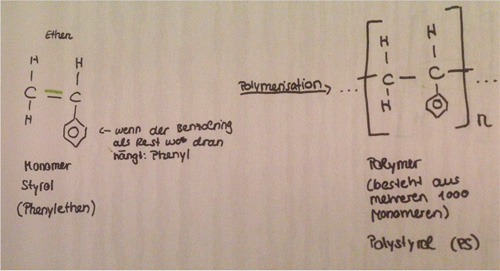 Ethen
H H
C = C
H
<- wenn der Benzolring
als Rest wo dran
hängt: Phenyl
Monomer
Styrol
(Phenylethen)
Polymerisation
H H
... C - C ...
H
n
Polymer
(besteht aus
mehreren 1000
Monomeren)
Polystyrol (PS)